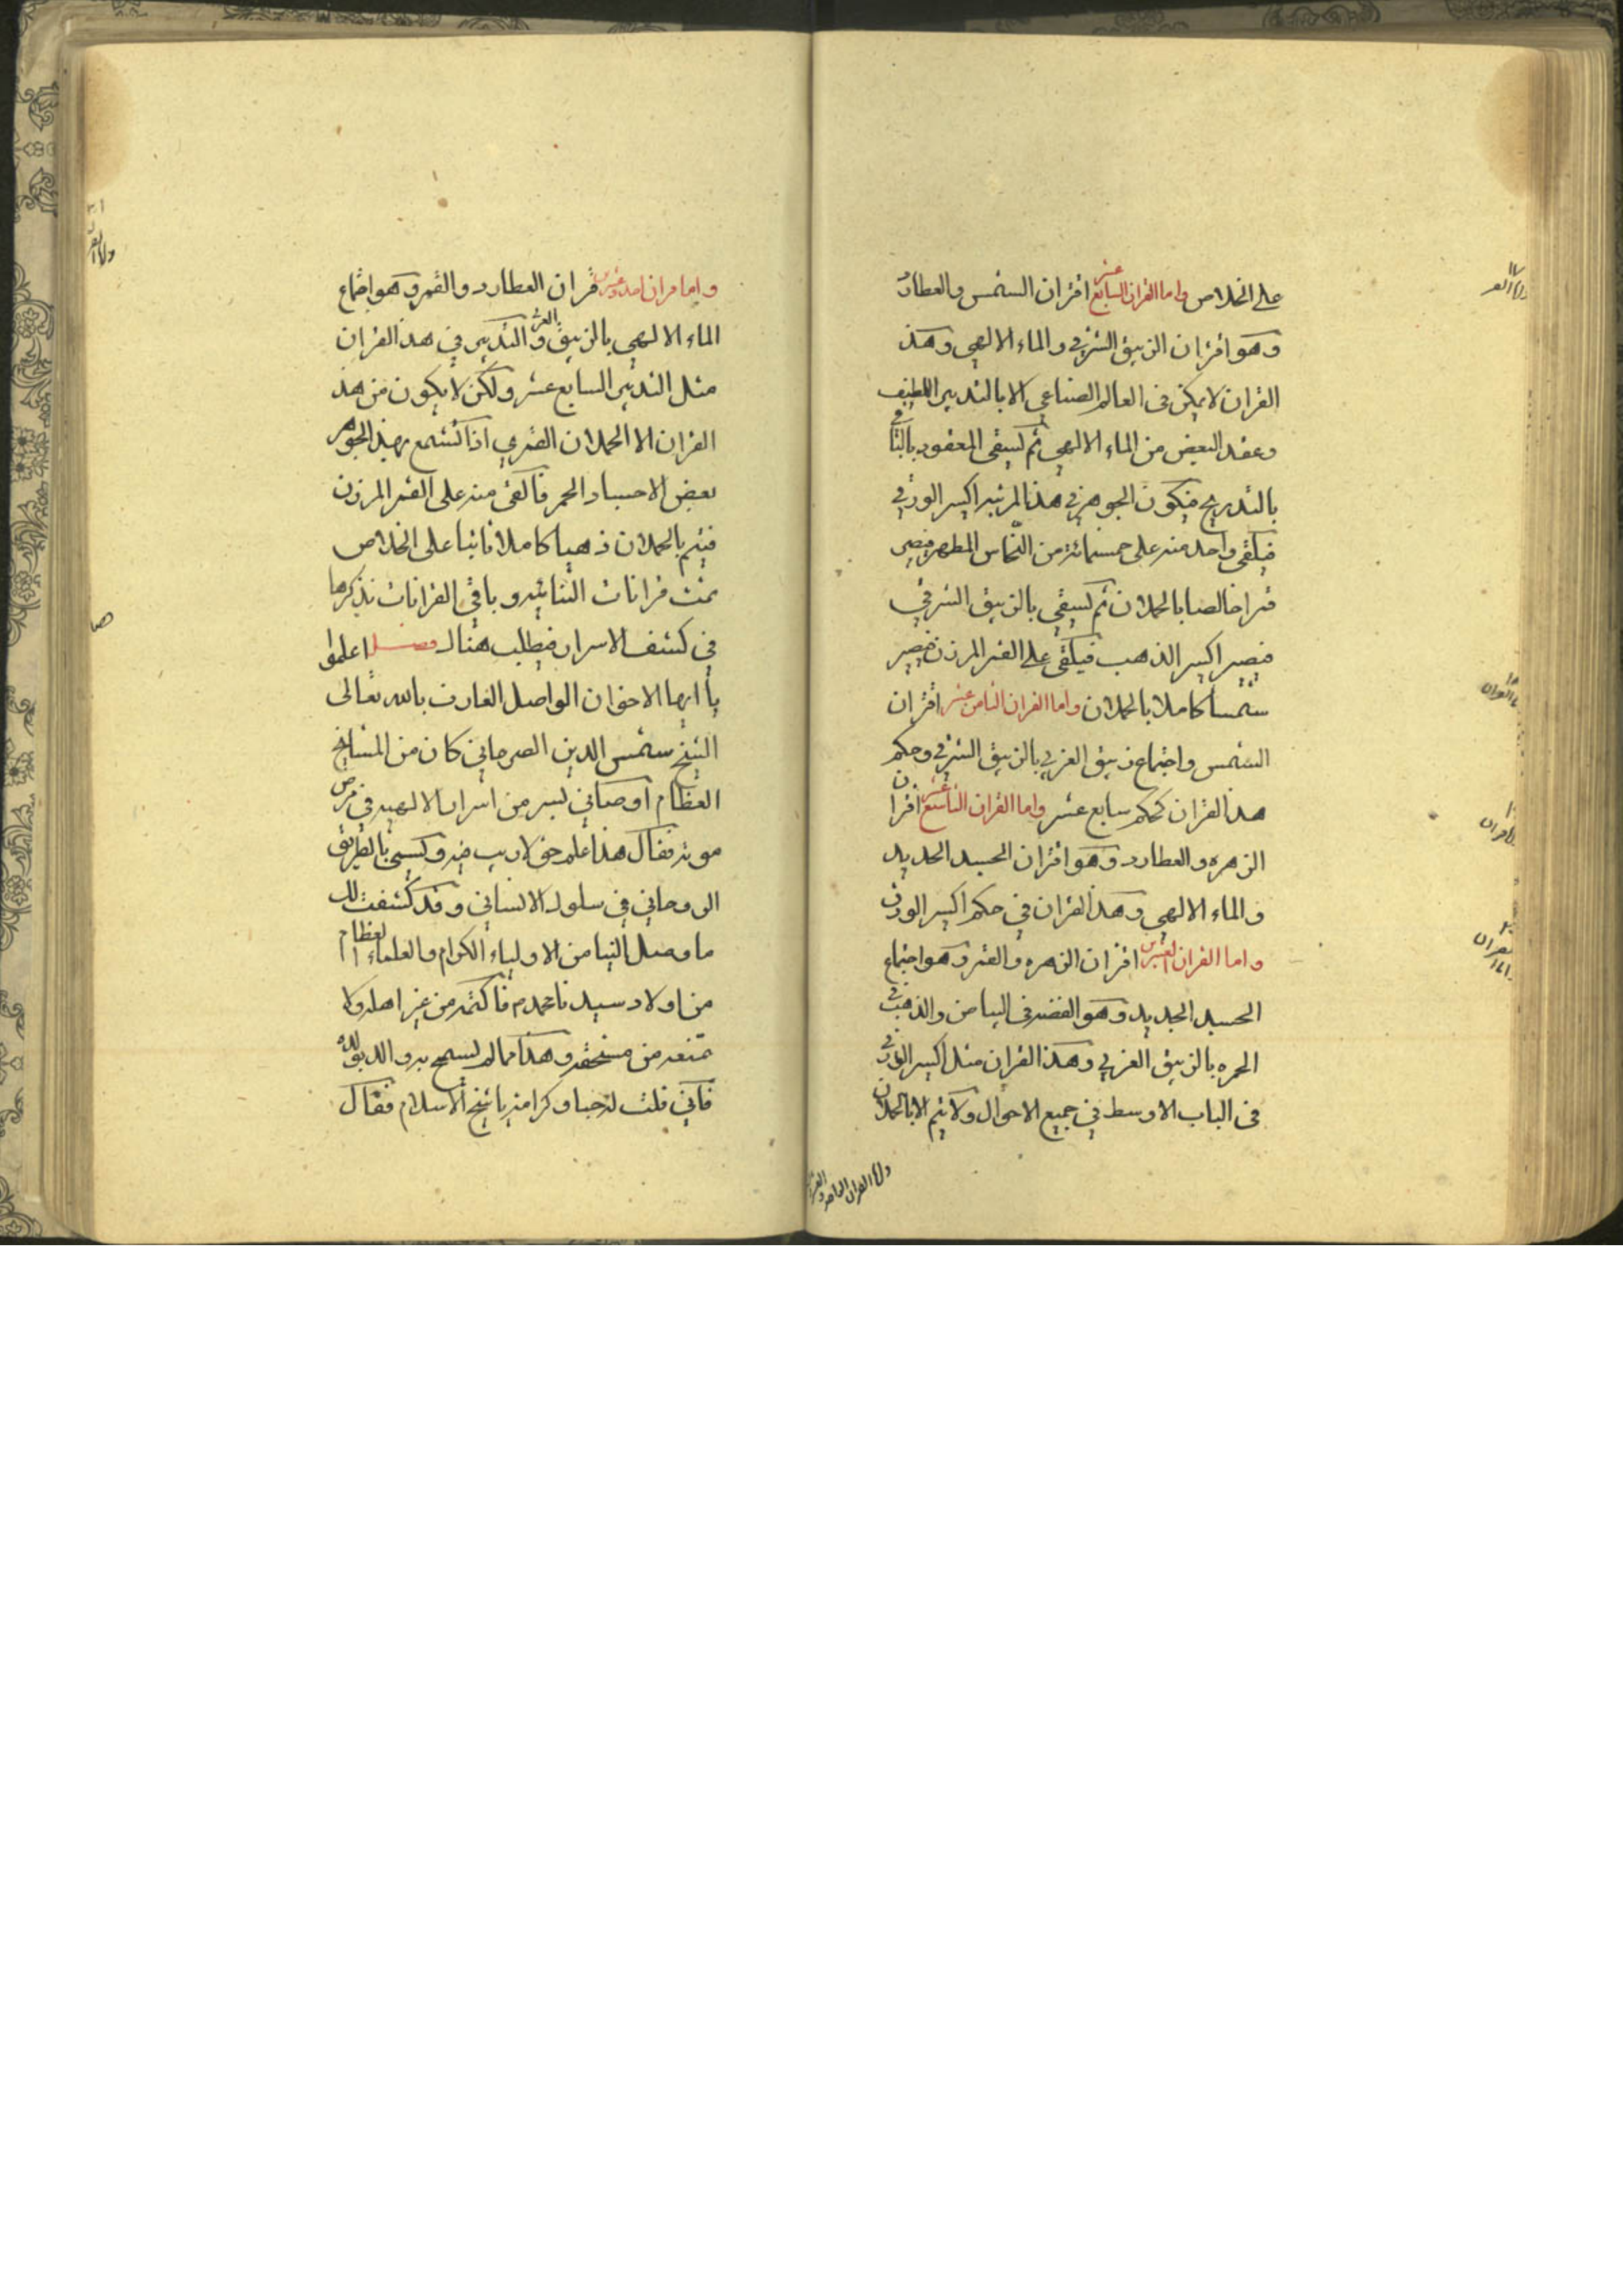 على الخلاص واما القران السابع عشر اقتران الشمس والعطارد
وهو اقتران الزيبق الشرقي والماء الالهي وهذ
القران لا يمكن في العالم الصناعي الا بالتدبير اللطيف
وعقد البعض من الماء الالهي ثم يسقى المعقود بالباقي
بالتدريج فيكون الجوهر في هذا المرتبه اكسير الورقي
فيلقى واحد منه على خمسمائة من النحاس المطهر فيصير
قمرا خالصا بالحملان ثم يسقى بالزيبق الشرقي
فيصير اكسير الذهب فيلقى على القمر المرزن فيصير
شمسا كاملا بالحملان واما القران الثامن عشر اقتران
الشمس واجتماع زيبق الغربي بالزيبق الشرقي وحكم
هذا القران كحكم سابع عشر واما القران التاسع عشر اقتران
الزهره والعطارد وهو اقتران الجسد الجديد
والماء الالهي وهذ القران في حكم اكسير الورقي
واما القران العشرين اقتران الزهره والقمر وهو اجتماع
الجسد الجديد وهو الفضه في البياض والذهب في
الحمره بالزيبق الغربي وهذا القران مثل اكسير الورقي
في الباب الاوسط في جميع الاحوال ولا يتم الا بالحملان
واما القران الحاد والعشرين
واما قران احد وعشرين قران العطارد والقمر وهو اجتماع
الماء الالهي بالزيبق الغربي والتدبير في هذ القران
مثل التدبير السابع عشر ولكن لا يكون من هذ
القران الا الحملان القمري اذا تشمع بهذ الجوهر
بعض الاجساد الحمر فالقى منه على القمر المرزن
فيتم بالحملان ذهبا كاملا ثابتا على الخلاص
تمت قرانات الثنائيه وباقي القرانات نذكرها
في كشف الاسرار فيطلب هناك فصل اعلموا
يا ايها الاخوان الواصل العارف بالله تعالى
الشيخ شمس الدين الصرحاني كان من المشايخ
العظام اوصاني بسر من اسرار الالهيه في مرض
موته فقال هذا علم حق لا ريب فيه ويسمى بالطريق
الروحاني في سلوك الانساني وقد كشفت لك
ما وصل الينا من الاولياء الكرام والعلماء العظام
من اولاد سيدنا محمد م فاكتمه من غير اهله ولا
تمنعه من مستحقه وهذا مما لم يسمح به والد بولده
فاني قلت له حبا وكرامة يا شيخ الاسلام فقال